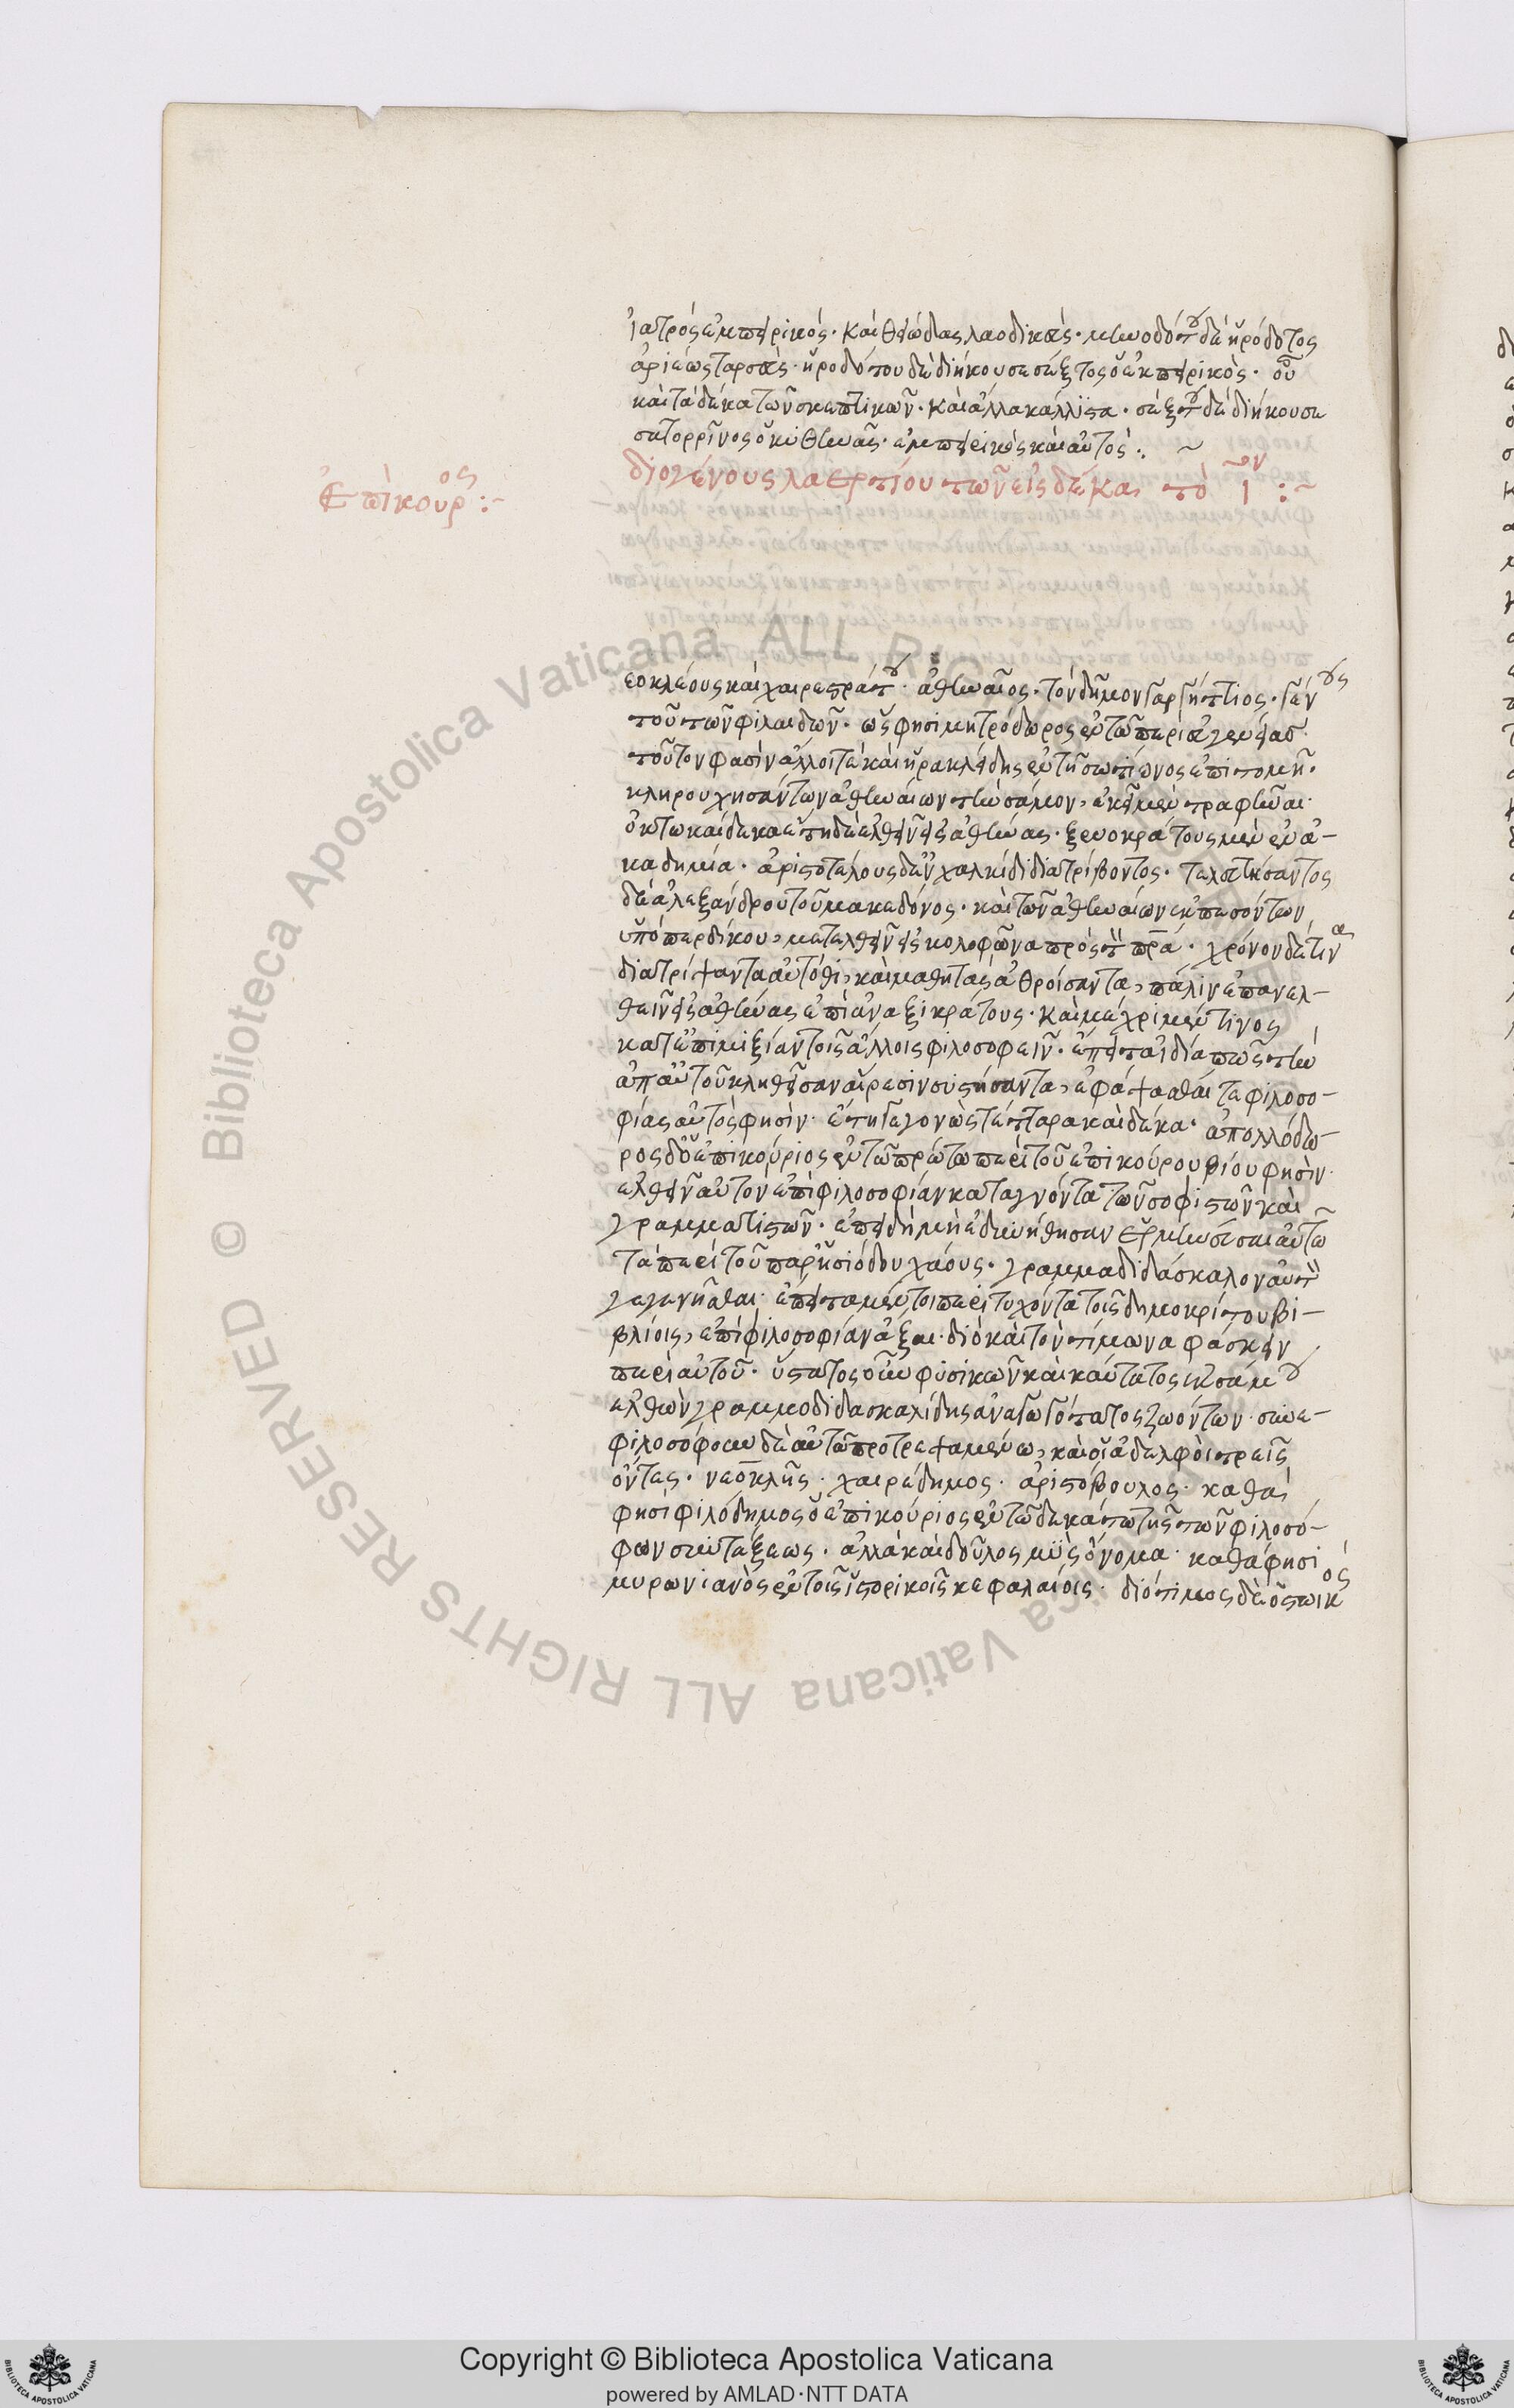 ἰατρὸς ἐμπειρικός· καὶ θειώδας λαοδικεύς· μηνοδότου δὲ ἡρόδοτος
ἀριέως ταρσεύς· ἡροδότου δὲ διήκουσε σέξτος ὁ ἐκπειρικὸς· οὗ
καὶ τὰ δέκα τῶν σκεπτικῶν· καὶ ἄλλα κάλλιστα· σέξτου δὲ διήκουσε
σατορρῖνος ὁ κυθηνᾶς· ἐμπειρικὸς καὶ αὐτός:~
διογένους λαερτίου τῶν εἰς δέκα, τὸ ιον:~
Ἐπίκουρος:~
εοκλέους καὶ χαιρεστράτου· ἀθηναῖος· τὸν δῆμον γαργήττιος· γένους
τοῦ τῶν φιλαιδῶν· ὥς φησι μητρόδωρος ἐν τῶ περὶ εὐγενείας·
τοῦτον φασὶν ἄλλοι τὲ καὶ ἡρακλείδης ἐν τῆ σωτίωνος ἐπιτομῆ·
κληρουχησάντων ἀθηναίων τὴν σάμον, ἐκεῖ μὲν τραφῆναι·
ὀκτωκαίδεκα ἔτη δὲ ἐλθεῖν εἰς ἀθήνας· ξενοκράτους μὲν ἐν ἀ-
καδημία· ἀριστοτέλους δ' ἐν χαλκίδι διατρίβοντος· τελευτήσαντος
δὲ ἀλεξάνδρου τοῦ μακεδόνος· καὶ τῶν ἀθηναίων ἐκπεσόντων
ὑπὸ περδίκου, μετελθεῖν εἰς κολοφῶνα πρὸς τὸν πρα· χρόνον δέ τινα
διατρίψαντα αὐτόθι, καὶ μαθητὰς ἀθροίσαντα, πάλιν ἐπανελ-
θεῖν εἰς ἀθήνας ἐπὶ ἀναξικράτους· καὶ μέχρι μέν τινος
κατεπιμιξίαν τοῖς ἄλλοις φιλοσοφεῖν· ἔπειτα ἰδία πως τὴν
ἀπ' αὐτοῦ κληθεῖσαν αἵρεσιν συστήσαντα, ἐφάψασθαί τε φιλοσο-
φίας αὐτὸς φησὶν· ἔτη γεγονὼς τέτταρα καὶ δέκα· ἀπολλόδω-
ρος δ' ὁ ἐπικούριος ἐν τῶ πρώτω περὶ τοῦ ἐπικούρου βίου φησὶν·
ἐλθεῖν αὐτὸν ἐπὶ φιλοσοφίαν καταγνόντα τῶν σοφιστῶν καὶ
γραμματιστῶν· ἐπειδὴ μὴ ἐδυνήθησαν ἑρμηνεῦσαι αὐτῶ
τὰ περὶ τοῦ παρ' ἡσιόδου χάους· γραμμαδιδάσκαλον αὐτὸν
γεγενῆσθαι· ἔπειτα μέντοι περιτυχόντα τοῖς δημοκρίτου βι-
βλίοις, ἐπὶ φιλοσοφίαν ἄξαι· διὸ καὶ τὸν τίμωνα φάσκειν
περὶ αὐτοῦ· ὕστατος αὖ φυσικῶν καὶ κύντατος ἐκ σάμου
ἐλθὼν γραμμοδιδασκαλίδης ἀναγωγότατος ζωόντων· συνε-
φιλοσόφουν δὲ αὐτῶ προτρεψαμένω, καὶ οἱ ἀδελφοὶ τρεῖς
ὄντες· νεοκλῆς· χαιρέδημος· ἀριστόβουλος· καθά
φησὶ φιλόδημος ὁ ἐπικούριος ἐν τῶ δεκάτω τῆς τῶν φιλοσό-
φων συντάξεως· ἀλλὰ καὶ δοῦλος μῦς ὄνομα· καθάφησι
μυρωνιανὸς ἐν τοῖς ἱστορικοῖς κεφαλαίοις· διότιμος δὲ ὁ στωικός
© Biblioteca Apostolica Vaticana ALL RIGHTS RESERVED
Copyright © Biblioteca Apostolica Vaticana
powered by AMLAD·NTT DATA
BIBLIOTECA APOSTOLICA VATICANA
BIBLIOTECA APOSTOLICA VATICANA